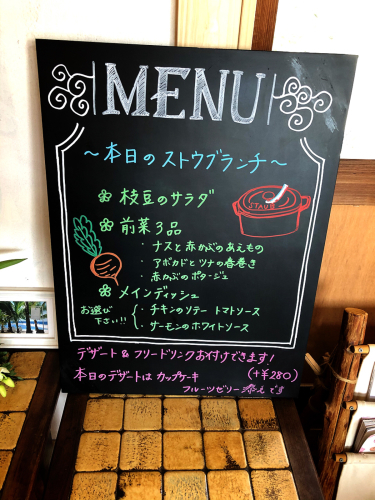 MENU
～本日のストウブランチ～
枝豆のサラダ
前菜3品
・ナスと赤かぶのあえもの
・アボカドとツナの春巻き
・赤かぶのポタージュ
STAUB
メインディッシュ
お選び下さい!!
・チキンのソテー トマトソース
・サーモンのホワイトソース
デザート&フリードリンクお付けできます!
本日のデザートは カップケーキ (+¥280)
フルーツゼリー添えです